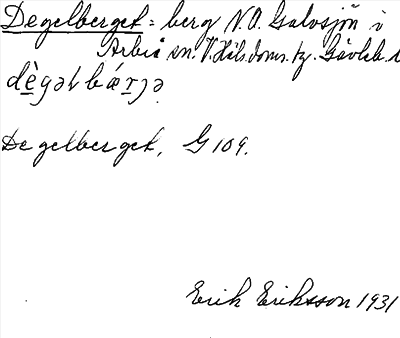 Degelberget = berg N.O. Galvsjön i
Arbrå sn. V. Häls. doms. tg. Gävleb. l
dègəlbæ̀rjə
Degelberget, G 109.
Erik Eriksson 1931